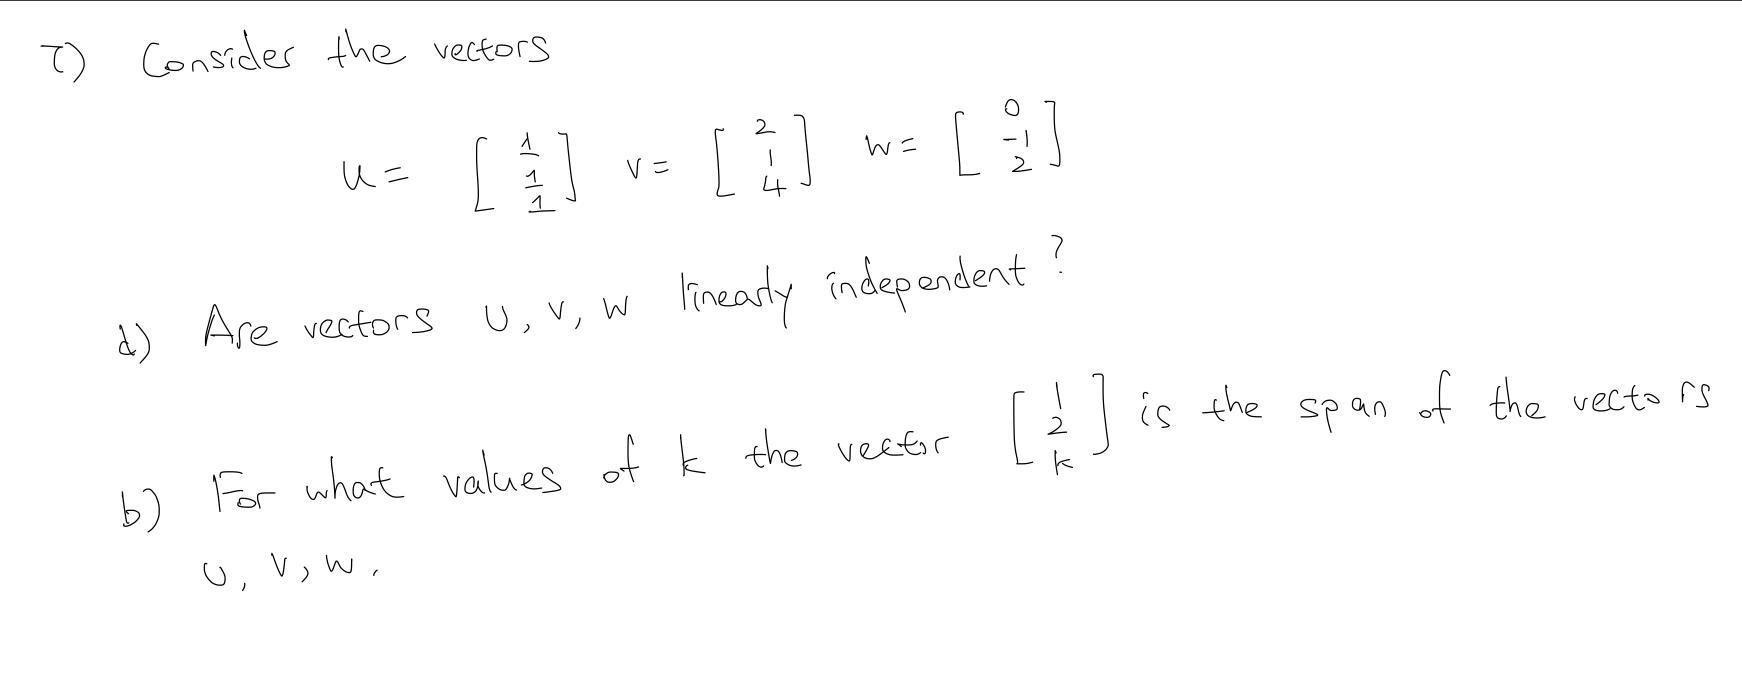 7) Consider the vectors
u = [1 1 1] v = [2 1 4] w = [0 -1 2]
d) Are vectors u, v, w linearly independent?
b) For what values of k the vector [1 2 k] is the span of the vectors
u, v, w.